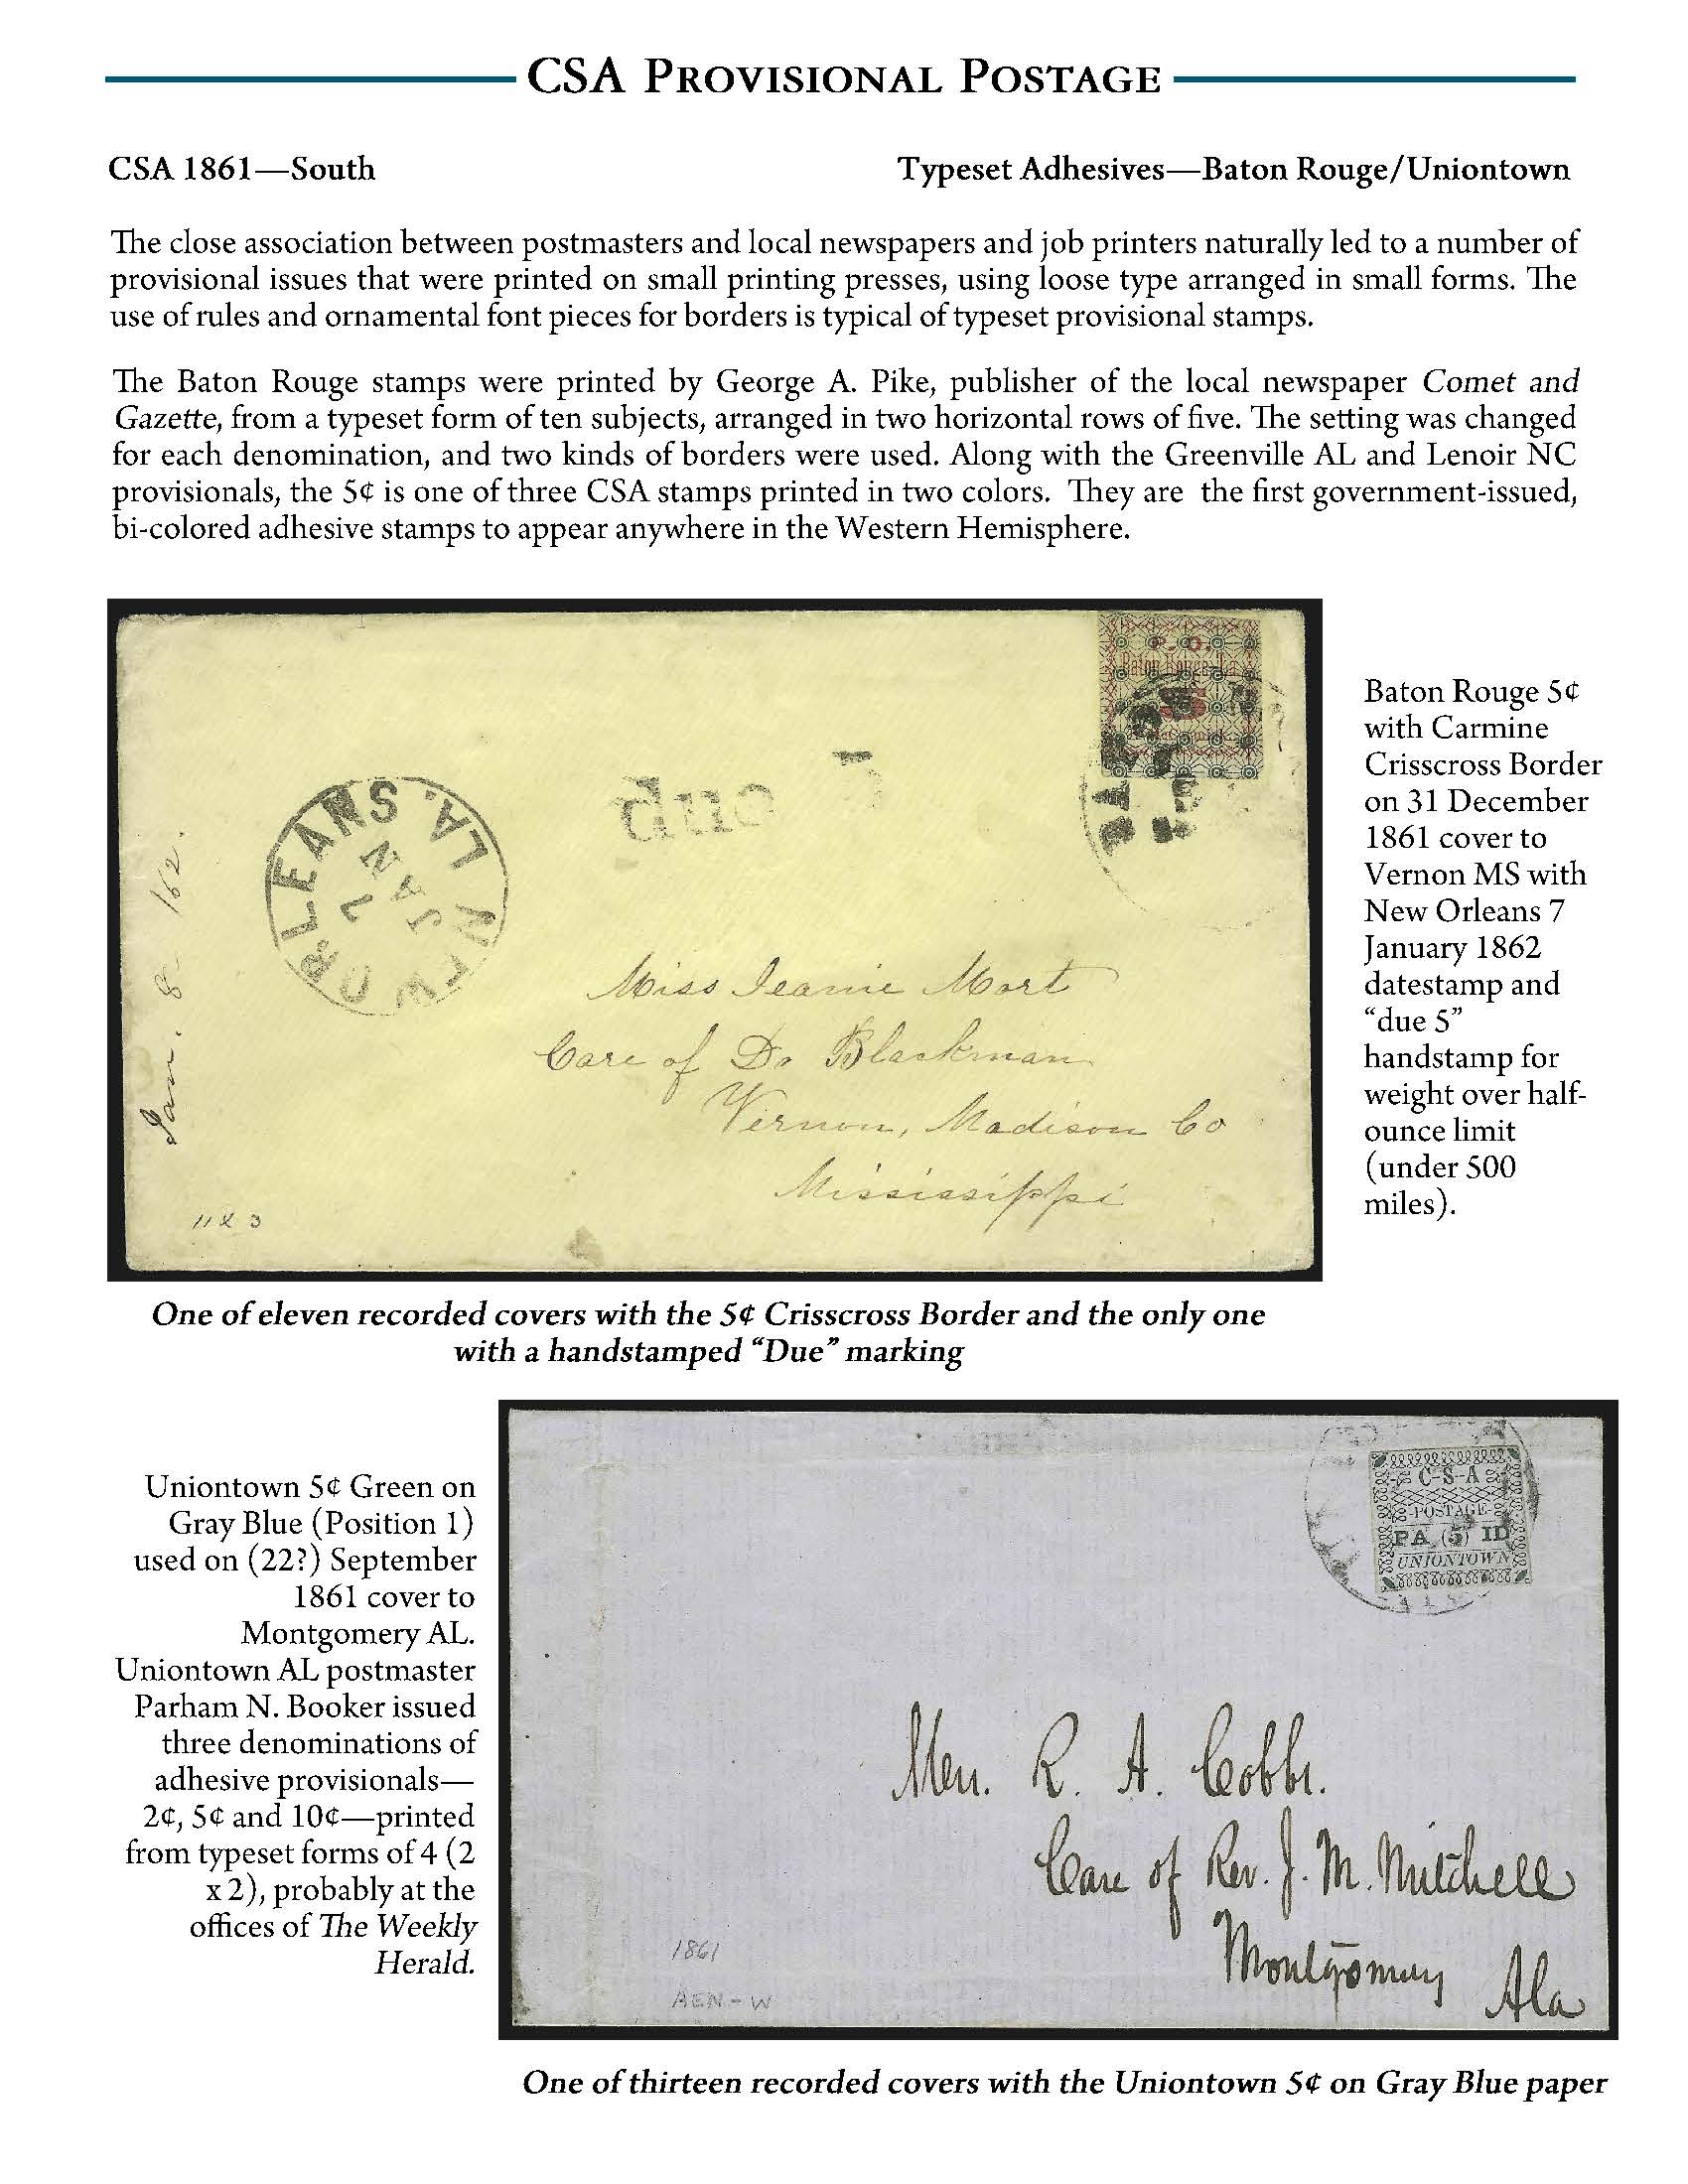 CSA Provisional Postage
CSA 1861—South
Typeset Adhesives—Baton Rouge/Uniontown
The close association between postmasters and local newspapers and job printers naturally led to a number of
provisional issues that were printed on small printing presses, using loose type arranged in small forms. The
use of rules and ornamental font pieces for borders is typical of typeset provisional stamps.
The Baton Rouge stamps were printed by George A. Pike, publisher of the local newspaper Comet and
Gazette, from a typeset form of ten subjects, arranged in two horizontal rows of five. The setting was changed
for each denomination, and two kinds of borders were used. Along with the Greenville AL and Lenoir NC
provisionals, the 5¢ is one of three CSA stamps printed in two colors. They are the first government-issued,
bi-colored adhesive stamps to appear anywhere in the Western Hemisphere.
P. O.
Baton Rouge, La
5
due
NEW ORLEANS LA.
JAN
7
Jan. 8 162.
Miss Jeanie Mort
Care of Dr Blackman
Vernon, Madison Co
Mississippi
11X3
Baton Rouge 5¢
with Carmine
Crisscross Border
on 31 December
1861 cover to
Vernon MS with
New Orleans 7
January 1862
datestamp and
“due 5”
handstamp for
weight over half-
ounce limit
(under 500
miles).
One of eleven recorded covers with the 5¢ Crisscross Border and the only one
with a handstamped “Due” marking
Uniontown 5¢ Green on
Gray Blue (Position 1)
used on (22?) September
1861 cover to
Montgomery AL.
Uniontown AL postmaster
Parham N. Booker issued
three denominations of
adhesive provisionals—
2¢, 5¢ and 10¢—printed
from typeset forms of 4 (2
x 2), probably at the
offices of The Weekly
Herald.
C-S-A
POSTAGE
PA (5) ID
UNIONTOWN
R. A. Cobbs.
Care of Rev. J. M. Mitchell
Montgomery Ala
1861
AEN-W
One of thirteen recorded covers with the Uniontown 5¢ on Gray Blue paper